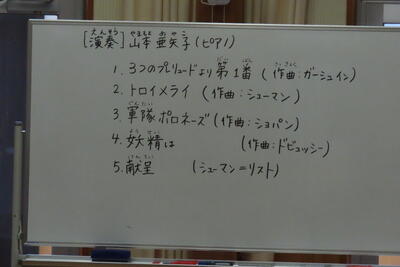 [演奏] 山本 亜矢子 (ピアノ)
1. 3つのプレリュードより 第1番 (作曲:ガーシュイン)
2. トロイメライ (作曲:シューマン)
3. 軍隊ポロネーズ (作曲:ショパン)
4. 妖精は (作曲:ドビュッシー)
5. 献呈 (シューマン=リスト)